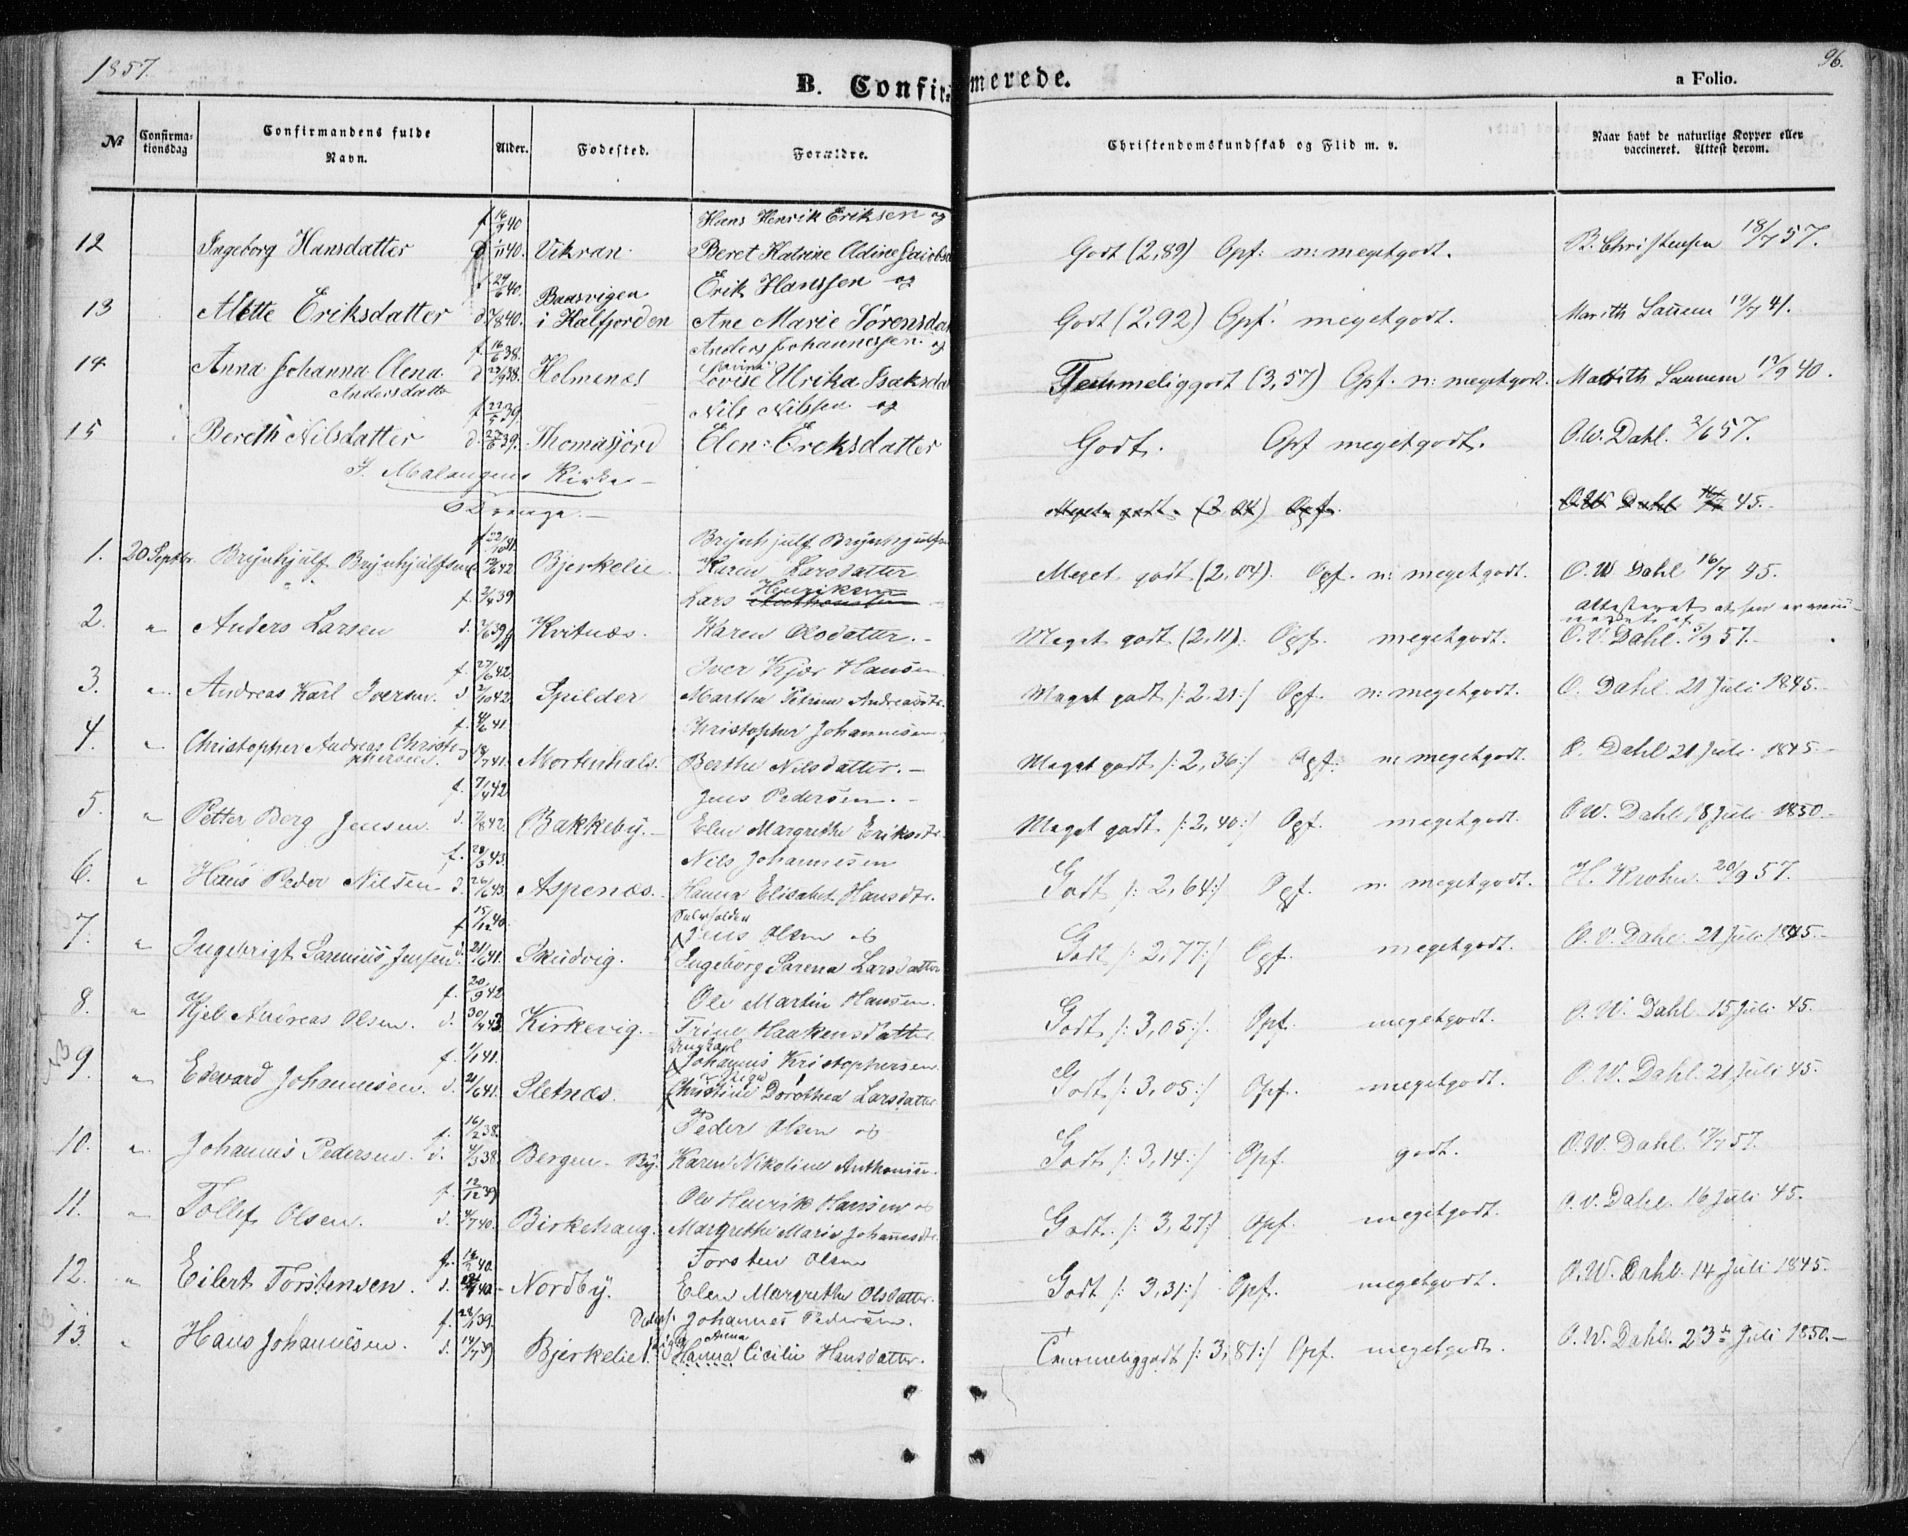 1857.
96.
B. Confirmerede.
a Folio.
No
Confirmationsdag
Confirmandens fulde Navn.
Alder.
Fødested.
Forældre.
Christendomskundskab og Flid m. v.
Naar havt de naturlige Kopper eller vaccineret. Attest derom.
Hans Henrik Eriksen og
12 Ingeborg Hansdatter Vikran. Beret Katrine Godt (2,89) Opf: n: megetgodt. B. Christensen 18/7 57.
Erik Hanssen og
13 Alette Eriksdatter Baasvigen i Halfjorden Ane Marie Sørensda Godt (2,92) Opf: megetgodt. Marith 19/7 41.
f. 16/6 38. Anders Johannessen og
14. Anna Johanna Olena Andersdatter Holmenæs Lovise Ulrika Isaksda Temmeliggodt (3,57) Opf. n: megetgodt. 12/9 40.
f. 22/5 39. Nils Nilssen og
15 Bereth Nilsdatter Thomasjord Elen Ereksdatter Godt. Opf megetgodt. O.W. Dahl. 2/6 57.
I Malangens Kirke
Meget godt. (2 04) Opf. O.W Dahl 16/7 45.
1. 20 Septbr. Brynhjulf Brynhjulfsen Bjerkelie Karen Larsdatter Meget godt (2,04). Opf. n: megetgodt. O.W Dahl 16/7 45.
f. 2/4 39. Lars Henriksen
2. " Anders Larsen d. Kvitnæs. Karen Olsdatter. Meget godt (2,11). Opf. megetgodt. O.V. Dahl. 5/9 57.
f. 27/6 42. Iver Kjær Hansen
3. " Andreas Karl Iversen. d. Spilder Martha Petrine Andreasdtr. Meget godt /: 2,21:/ Opf. n: megetgodt. O. Dahl 21 Juli 1845.
f. 4/6 41. Christopher Johannesen
4. " Christopher Andreas Christophersen. d. 18/7 41. Mortenhals. Berthe Nilsdatter. Meget godt /: 2,36:/ Opf. n: megetgodt. O. Dahl 21 Juli 1845.
f. 7/4 42 Jens Pedersen.
5. " Petter Berg Jensen. d. 7/8 42. Bakkeby. Elen Margrethe Eriksdtr. Meget godt /: 2,40:/ Opf. megetgodt. O.W. Dahl, 18 Juli 1850.
f. 28/3 43. Nils Johannesen
6. " Hans Peder Nilsen d. 26/6 43. Aspenæs. Hanna Elisabet Hansdtr. Godt /: 2,64:/ Opf. n: megetgodt. H. Krohn. 20/9 57.
f. 15/12 40. Jens Olsen og
7. " Ingebrigt Sarenius Jensen d. 21/6 41. Skudvig. Ingeborg Sarena Larsdatter Godt /: 2,77:/ Opf. megetgodt. O.V. Dahl. 21 Juli 1845.
f. 20/9 42. Ole Martin Hansen.
8. " Kjel Andreas Olsen. d. 30/4 43. Kirkevig. Trine Haakensdatter Godt /: 3,05:/. Opf. megetgodt. O.W. Dahl 15 Juli 45.
f. 1/1 41. Ungkarl Johannes Kristophersen
9. " Edevard Johannesen. d. 21/6 41. Sletnæs. Christine Dorothea Larsdatter Godt /: 3,05:/ Opf. megetgodt. O.W. Dahl. 21 Juli 45.
f. 16/2 38. Peder Olsen og
10. " Johannes Pedersen. d. 4/3 38. Bergen By. Karen Nikoline Godt /: 3,14:/ Opf. godt. O.W. Dahl. 17/7 57.
f. 12/12 39 Ole Henrik Hansen og
11. " Tollef Olsen. d. 4/7 40. Birkehaug. Margrethe Marie Johannesdtr. Godt /: 3,27:/ Opf. megetgodt. O.V. Dahl. 16 Juli 45.
Torsten Olsen
12. " Eilert Torstensen. d. Nordby. Elen Margrethe Olsdatter. Godt /: 3,31:/ Opf. megetgodt. O.W. Dahl. 14 Juli 1845.
f. 28/3 39. Johannes Pedersen.
13. " Hans Johannesen. d. 14/7 39 Bjerkelie Anna Hanna Cicilie Hansdatter. Temmeliggodt /: 3,81:/ Opf. megetgodt. O.W. Dahl. 23de Juli 1850.